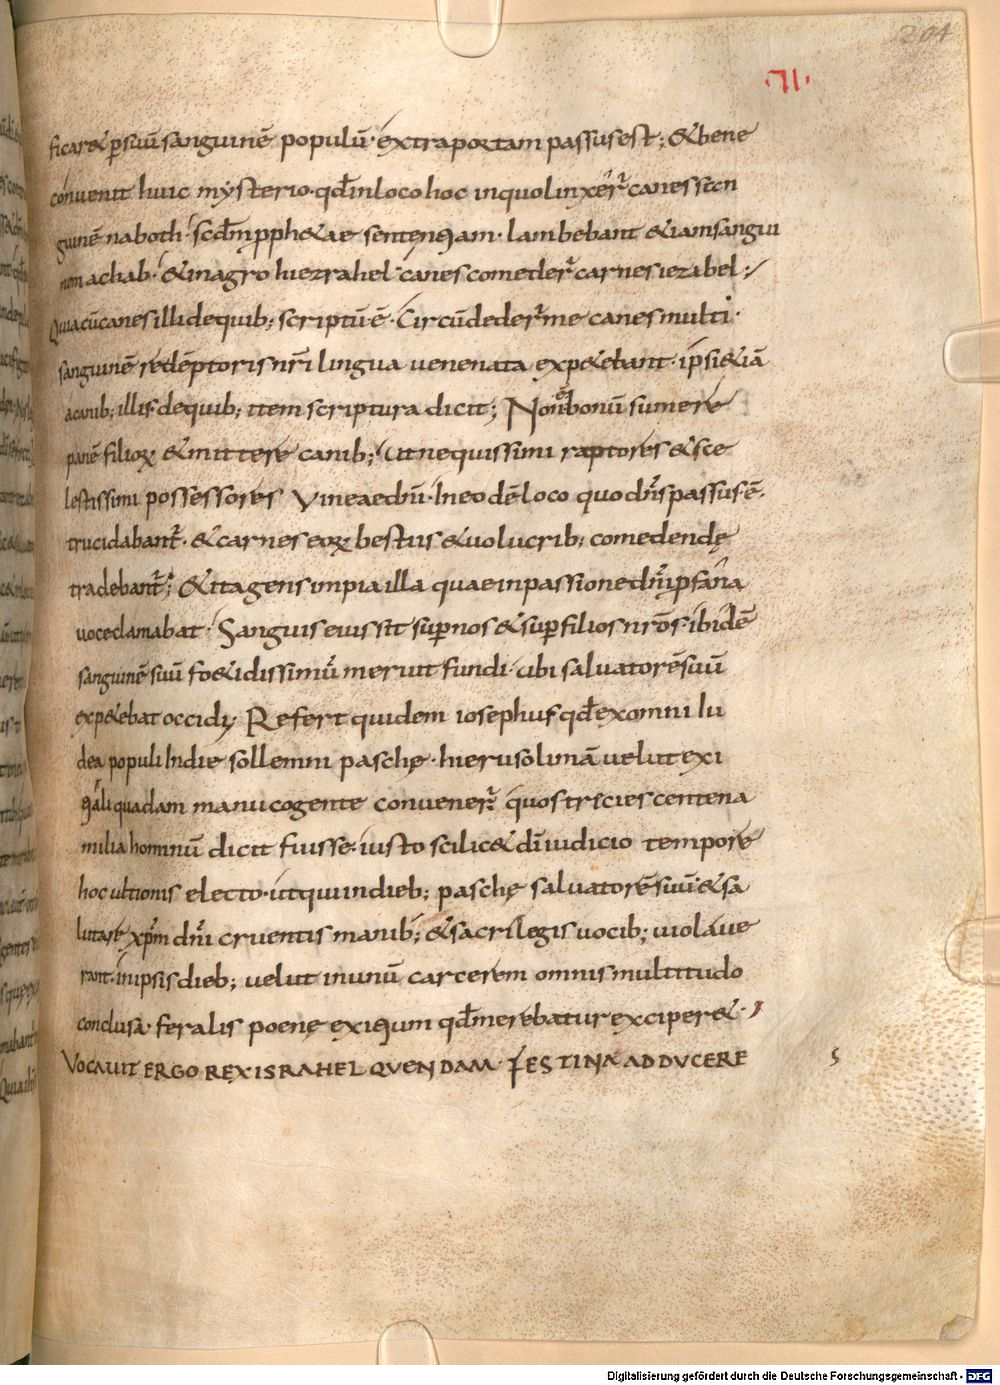 204
·VI·
ficar& ꝑ suũ sanguinẽ populũ· extra portam passus est; & bene
convenit huic mysterio· qđ in loco hoc in quo linxer̃ canes san
guinẽ naboth· scđm pph&ae sententiam· lambebant & iam sangui
nem achab· & in agro hiezrahel canes comeder̃ carnes iezabel;
Quia cũ canes illi de quib; scriptũ ẽ· Circũdeder̃ me canes multi·
sanguinẽ redẽptoris nr̃i lingua venenata exp&ebant· ipsi &iã
a canib; illis de quib; item scriptura dicit; Non ẽ bonũ sumere
panẽ filioꝝ & mittere canib; Ut nequissimi raptores & sce
lestissimi possessores vineae dñi· In eodẽ loco quo dñs passus ẽ·
trucidabant̃· & carnes eoꝝ bestiis & volucrib; comedendę
tradebant̃; & ita gens impia illa quae in passione dñi ꝓfana
uoce clamabat· Sanguis eius sit suꝑ nos & suꝑ filios nr̃os ibidẽ
sanguinẽ suũ fo&idissimũ meruit fundi· ubi salvatorẽ suũ
exp&ebat occidi; Refert quidem iosephus qđ ex omni Iu
dea populi In die sollemni paschę· hierusolimã velut exi
tiali quadam manu cogente convener̃· quos tricies centena
milia hominũ dicit fuisse· iusto scilic& dĩ iudicio tempore
hoc ultionis electo· ut qui in dieb; paschę salvatorẽ suũ & sa
lutarẽ xp̃m dñi cruentis manib; & sacrilegis vocib; violave
rant· in ipsis dieb; velut in unũ carcerem omnis multitudo
conclusa· feralis poenę exitium qđ merebatur exciper&·
Vocavit ergo rex israhel quendam· Festina adducere
Digitalisierung gefördert durch die Deutsche Forschungsgemeinschaft - DFG